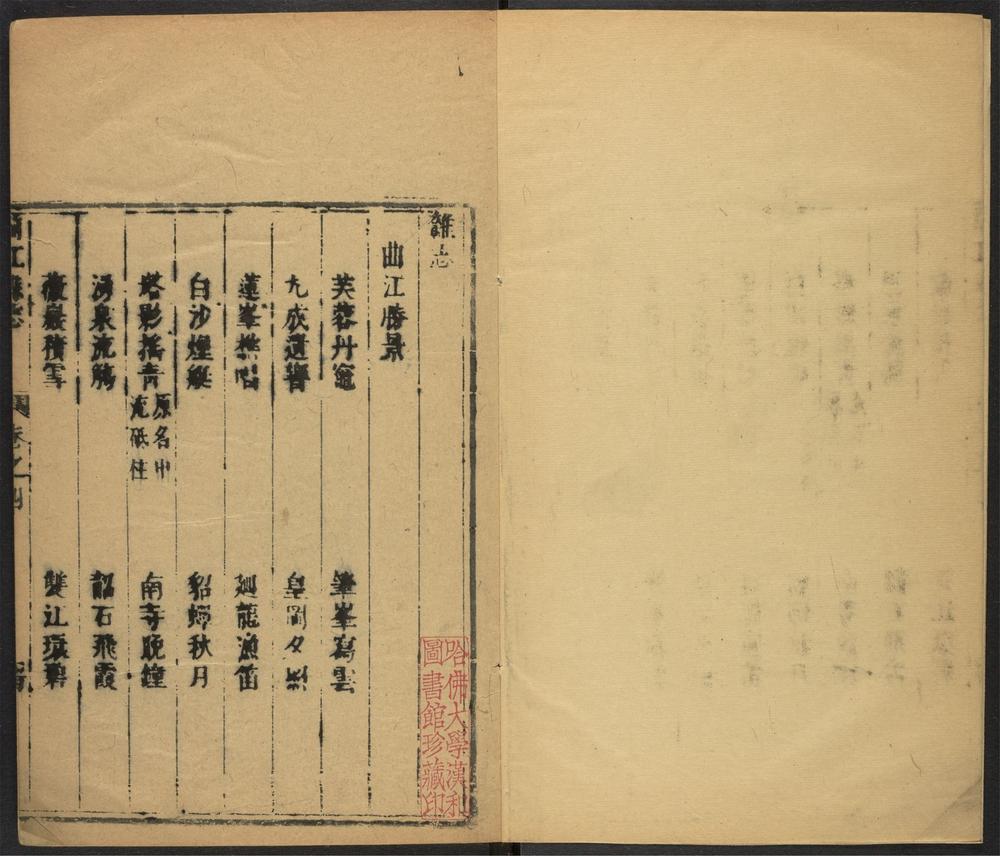 雜志
曲江勝景
芙蓉丹竈 筆峯寫雲
九成遺響 皇岡夕照
蓮峯樵唱 廻龍漁笛
白沙煙艇 貂蟬秋月
塔影搖青 原名中流砥柱 南寺晚鐘
湧泉流觴 韶石飛霞
薇巖積雪 雙江環碧
曲江縣志 卷之四
哈佛大學漢和
圖書館珍藏印